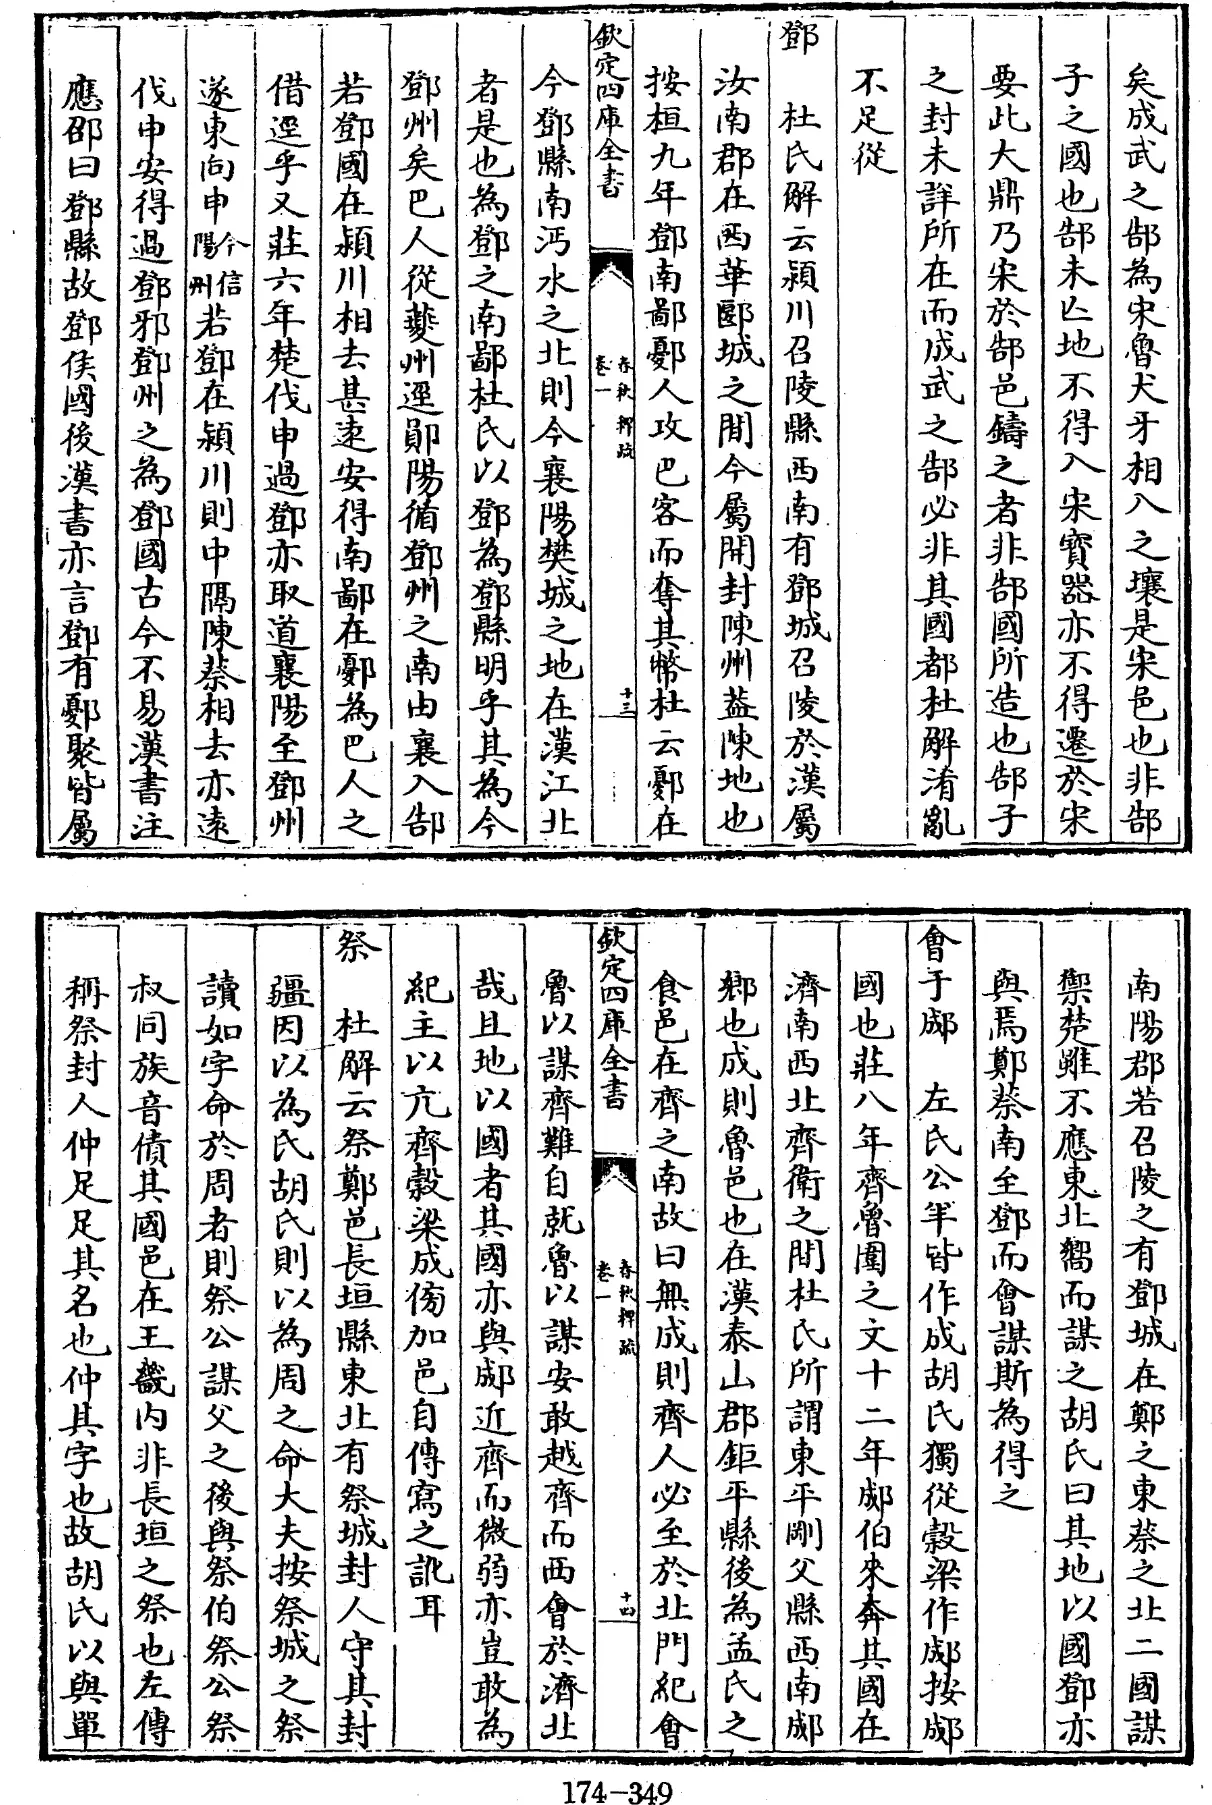 矣成武之郜為宋魯犬牙相入之壤是宋邑也非郜
子之國也郜未亾地不得入宋寳器亦不得遷於宋
要此大鼎乃宋於郜邑鑄之者非郜國所造也郜子
之封未詳所在而成武之郜必非其國都杜解淆亂
不足從
鄧　杜氏解云潁川召陵縣西南有鄧城召陵於漢屬
汝南郡在西華郾城之間今屬開封陳州葢陳地也
按桓九年鄧南鄙鄾人攻巴客而奪其幣杜云鄾在
欽定四庫全書
春秋稗疏
卷一
十三
今鄧縣南沔水之北則今襄陽樊城之地在漢江北
者是也為鄧之南鄙杜氏以鄧為鄧縣明乎其為今
鄧州矣巴人從夔州逕鄖陽循鄧州之南由襄入郜
若鄧國在潁川相去甚逺安得南鄙在鄾為巴人之
借逕乎又莊六年楚伐申過鄧亦取道襄陽至鄧州
遂東向申今信陽州若鄧在潁川則中隔陳蔡相去亦遠
伐申安得過鄧邪鄧州之為鄧國古今不易漢書注
應邵曰鄧縣故鄧侯國後漢書亦言鄧有鄾聚皆屬
南陽郡若召陵之有鄧城在鄭之東蔡之北二國謀
禦楚雖不應東北嚮而謀之胡氏曰其地以國鄧亦
與焉鄭蔡南至鄧而會謀斯為得之
會于郕　左氏公羊皆作成胡氏獨從穀梁作郕按郕
國也莊八年齊魯圍之文十二年郕伯來奔其國在
濟南西北齊衛之間杜氏所謂東平剛父縣西南郕
鄉也成則魯邑也在漢泰山郡鉅平縣後為孟氏之
食邑在齊之南故曰無成則齊人必至於北門紀會
欽定四庫全書
春秋稗疏
卷一
十四
魯以謀齊難自就魯以謀安敢越齊而西會於濟北
哉且地以國者其國亦與郕近齊而微弱亦豈敢為
紀主以亢齊穀梁成傍加邑自傳寫之訛耳
祭　杜解云祭鄭邑長垣縣東北有祭城封人守其封
疆因以為氏胡氏則以為周之命大夫按祭城之祭
讀如字命於周者則祭公謀父之後與祭伯祭公祭
叔同族音債其國邑在王畿内非長垣之祭也左傳
稱祭封人仲足足其名也仲其字也故胡氏以與單
174-349